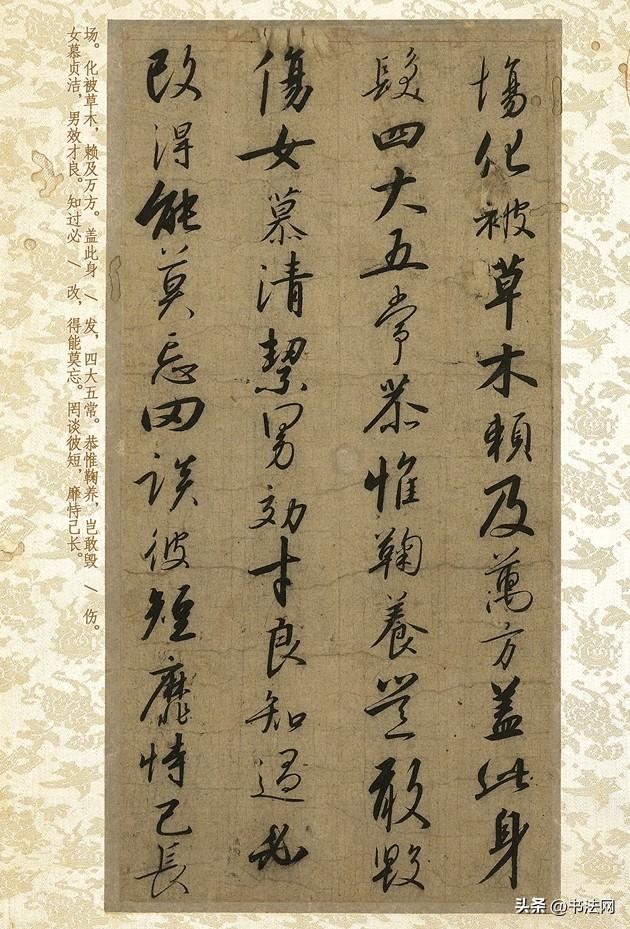 場化被草木賴及萬方蓋此身
髮四大五常恭惟鞠養豈敢毀
傷女慕清絜男効才良知過必
改得能莫忘罔談彼短靡恃己長
场。化被草木，赖及万方。盖此身 \ 发，四大五常。恭惟鞠养，岂敢毁 \ 伤。
女慕贞洁，男效才良。知过必 \ 改，得能莫忘。罔谈彼短，靡恃己长。
头条 @书法网